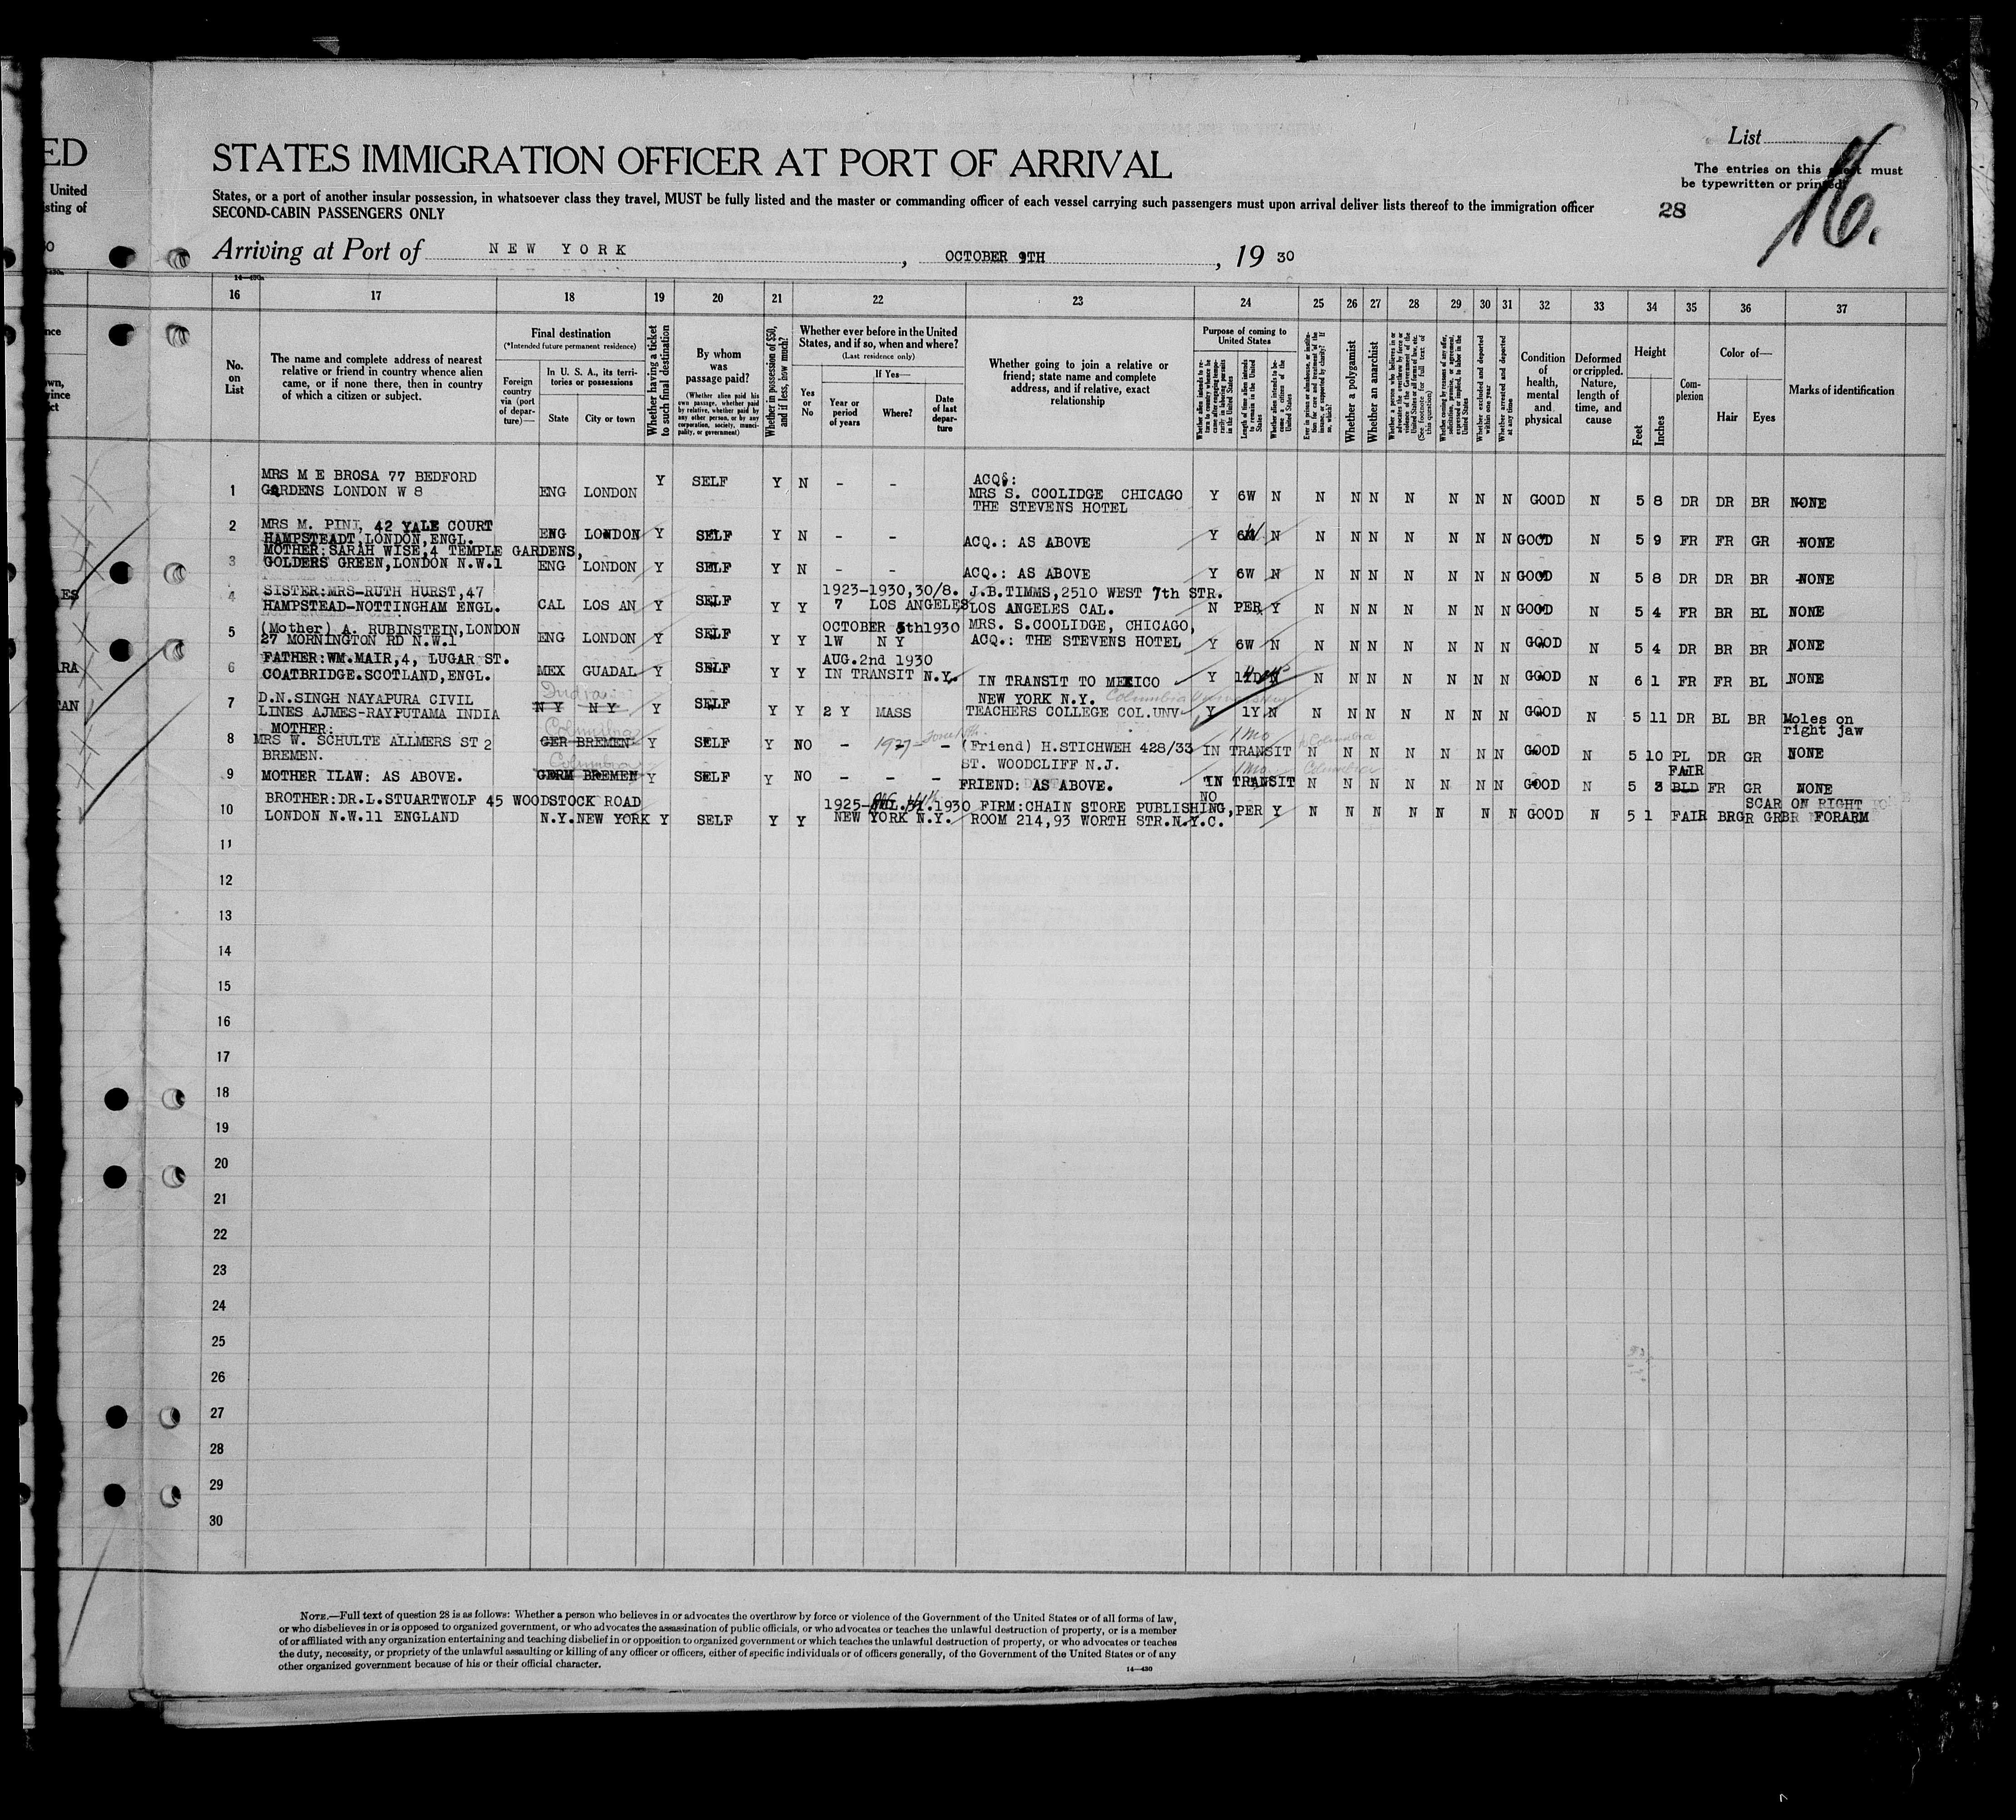 ED
STATES IMMIGRATION OFFICER AT PORT OF ARRIVAL
List
16.
The entries on this sheet must
be typewritten or printed
28
United
sting of
States, or a port of another insular possession, in whatsoever class they travel, MUST be fully listed and the master or commanding officer of each vessel carrying such passengers must upon arrival deliver lists thereof to the immigration officer
SECOND-CABIN PASSENGERS ONLY
Arriving at Port of NEW YORK, OCTOBER 9TH, 19 30
14—430a
16 17 18 19 20 21 22 23 24 25 26 27 28 29 30 31 32 33 34 35 36 37
No. on List
The name and complete address of nearest relative or friend in country whence alien came, or if none there, then in country of which a citizen or subject.
Final destination
(*Intended future permanent residence)
Foreign country via (port of departure)—
In U. S. A., its territories or possessions
State
City or town
Whether having a ticket to such final destination
By whom was passage paid?
(Whether alien paid his own passage, whether paid by relative, whether paid by any other person, or by any corporation, society, municipality, or government)
Whether in possession of $50, and if less, how much?
Whether ever before in the United States, and if so, when and where?
(Last residence only)
Yes or No
If Yes—
Year or period of years
Where?
Date of last departure
Whether going to join a relative or friend; state name and complete address, and if relative, exact relationship
Purpose of coming to United States
Whether alien intends to return to country whence he came after engaging temporarily in laboring pursuits in the United States
Length of time alien intends to remain in the United States
Whether alien intends to become a citizen of the United States
Ever in prison or almshouse, or institution for care and treatment of the insane, or supported by charity? If so, which?
Whether a polygamist
Whether an anarchist
Whether a person who believes in or advocates the overthrow by force or violence of the Government of the United States or all forms of law, etc. (See footnote for full text of this question)
Whether coming by reason of any offer, solicitation, promise, or agreement, expressed or implied, to labor in the United States
Whether excluded and deported within one year
Whether arrested and deported at any time
Condition of health, mental and physical
Deformed or crippled. Nature, length of time, and cause
Height
Feet
Inches
Complexion
Color of—
Hair
Eyes
Marks of identification
MRS M E BROSA 77 BEDFORD ACQ:
1 GARDENS LONDON W 8 ENG LONDON Y SELF Y N - - MRS S. COOLIDGE CHICAGO Y 6W N N N N N N N N GOOD N 5 8 DR DR BR NONE
THE STEVENS HOTEL
2 MRS M. PINI, 42 YALE COURT
HAMPSTEADT, LONDON, ENGL. ENG LONDON Y SELF Y N - - ACQ.: AS ABOVE Y 6W N N N N N N N N GOOD N 5 9 FR FR GR NONE
MOTHER: SARAH WISE, 4 TEMPLE GARDENS,
3 GOLDERS GREEN, LONDON N.W.1 ENG LONDON Y SELF Y N - - ACQ.: AS ABOVE Y 6W N N N N N N N N GOOD N 5 8 DR DR BR NONE
SISTER: MRS-RUTH HURST, 47 1923-1930, 30/8. J.B.TIMMS, 2510 WEST 7th STR.
4 HAMPSTEAD-NOTTINGHAM ENGL. CAL LOS AN Y SELF Y Y 7 LOS ANGELES LOS ANGELES CAL. N PER Y N N N N N N N GOOD N 5 4 FR BR BL NONE
(Mother) A. RUBINSTEIN, LONDON OCTOBER 5th 1930 MRS. S.COOLIDGE, CHICAGO,
5 27 MORNINGTON RD N.W.1 ENG LONDON Y SELF Y Y 1W N Y ACQ.: THE STEVENS HOTEL Y 6W N N N N N N N N GOOD N 5 4 DR BR BR NONE
FATHER: WM.MAIR, 4, LUGAR ST. AUG.2nd 1930
6 COATBRIDGE. SCOTLAND, ENGL. MEX GUADAL Y SELF Y Y IN TRANSIT N.Y. IN TRANSIT TO MEXICO Y N N N N N N N GOOD N 6 1 FR FR BL NONE
India
D.N.SINGH NAYAPURA CIVIL NEW YORK N.Y. Columbia University
7 LINES AJMES-RAYPUTAMA INDIA N Y N Y Y SELF Y Y 2 Y MASS TEACHERS COLLEGE COL.UNV Y 1Y N N N N N N N N GOOD N 5 11 DR BL BR Moles on right jaw
MOTHER: Columbia 1 mo
8 MRS W. SCHULTE ALLMERS ST 2 GER BREMEN Y SELF Y NO - 1927 - (Friend) H.STICHWEH 428/33 IN TRANSIT N N N N N N N GOOD N 5 10 PL DR GR NONE
BREMEN. ST. WOODCLIFF N.J.
Columbia 1 mo Columbia FAIR
9 MOTHER ILAW: AS ABOVE. GERM BREMEN Y SELF Y NO - - - FRIEND: AS ABOVE. IN TRANSIT N N N N N N N GOOD N 5 3 BLD FR GR NONE
BROTHER: DR.L.STUARTWOLF 45 WOODSTOCK ROAD 1925- 1930 FIRM: CHAIN STORE PUBLISHING, NO SCAR ON RIGHT
10 LONDON N.W.11 ENGLAND N.Y. NEW YORK Y SELF Y Y NEW YORK N.Y. ROOM 214, 93 WORTH STR.N.Y.C. PER Y N N N N N N N GOOD N 5 1 FAIR BRGR GRBR FORARM
11
12
13
14
15
16
17
18
19
20
21
22
23
24
25
26
27
28
29
30
NOTE.—Full text of question 28 is as follows: Whether a person who believes in or advocates the overthrow by force or violence of the Government of the United States or of all forms of law,
or who disbelieves in or is opposed to organized government, or who advocates the assassination of public officials, or who advocates or teaches the unlawful destruction of property, or is a member
of or affiliated with any organization entertaining and teaching disbelief in or opposition to organized government or which teaches the unlawful destruction of property, or who advocates or teaches
the duty, necessity, or propriety of the unlawful assaulting or killing of any officer or officers, either of specific individuals or of officers generally, of the Government of the United States or of any
other organized government because of his or their official character.
14—430